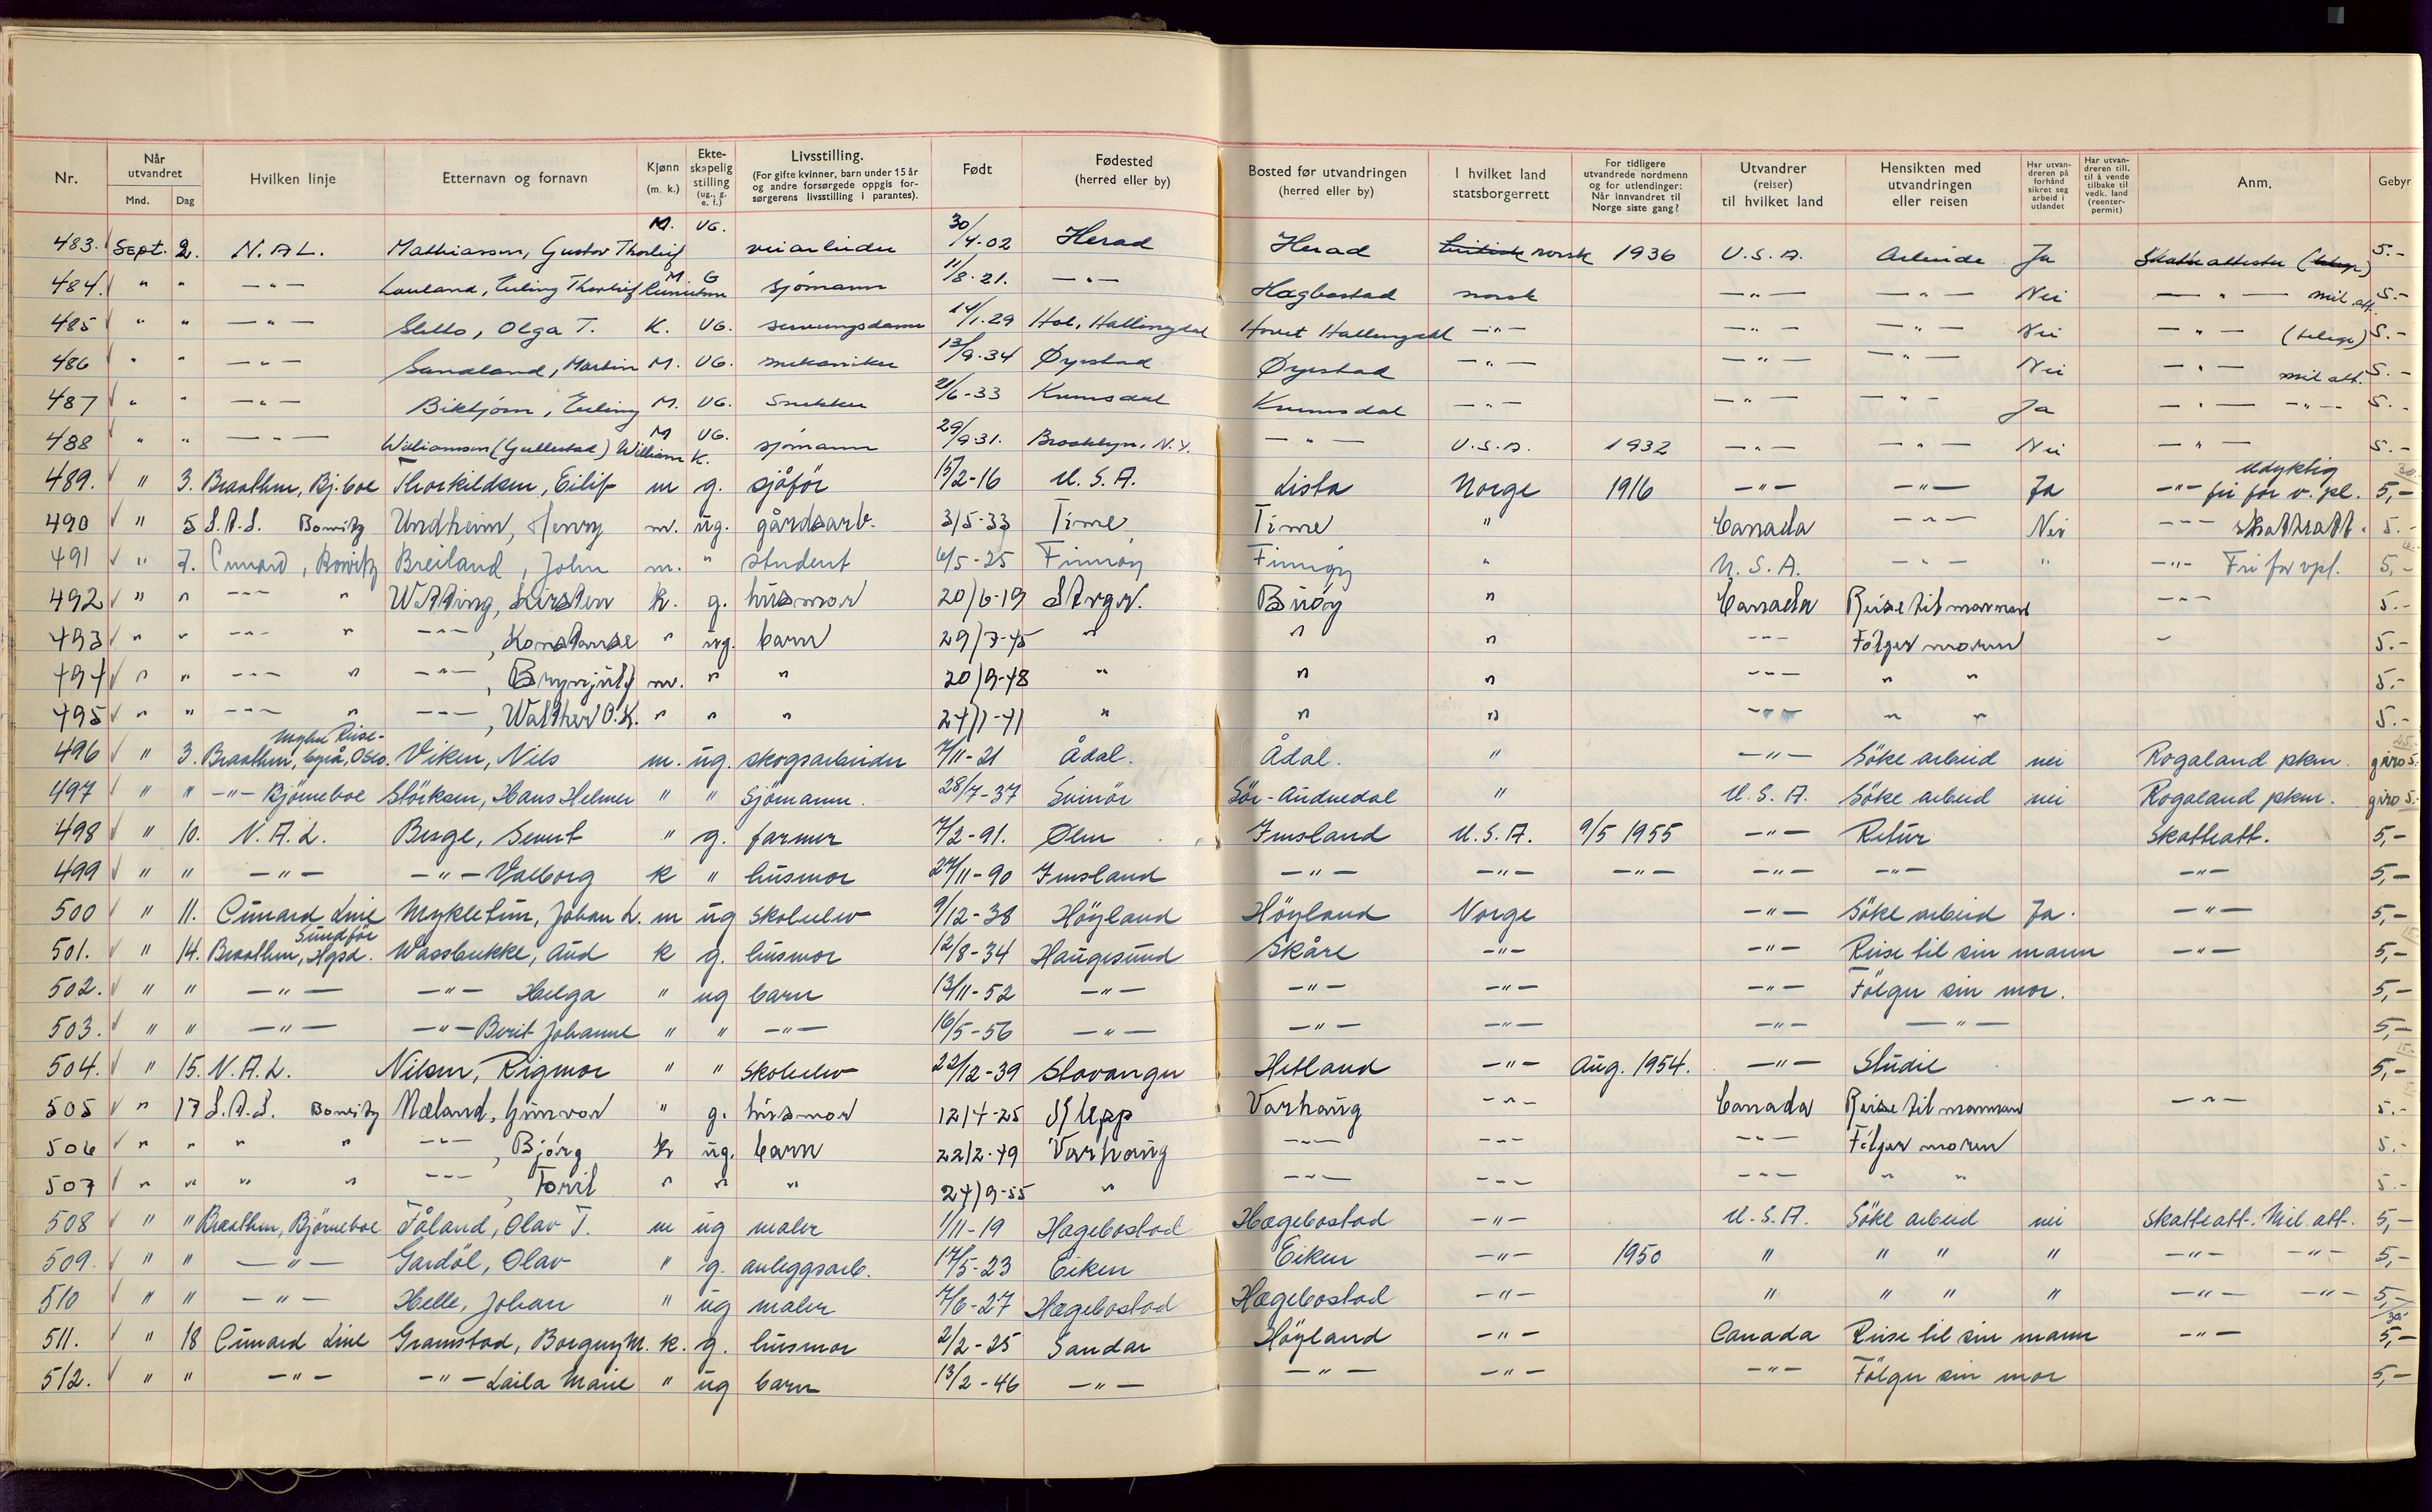 Nr. Når utvandret Mnd. Dag Hvilken linje Etternavn og fornavn Kjønn (m. k.) Ekteskapelig stilling (ug., g. e. f.) Livsstilling. (For gifte kvinner, barn under 15 år og andre forsørgede oppgis forsørgerens livsstilling i parantes). Født Fødested (herred eller by) Bosted før utvandringen (herred eller by) I hvilket land statsborgerrett For tidligere utvandrede nordmenn og for utlendinger: Når innvandret til Norge siste gang? Utvandrer (reiser) til hvilket land Hensikten med utvandringen eller reisen Har utvandreren på forhånd sikret seg arbeid i utlandet Har utvandreren till. til å vende tilbake til vedk. land (reenterpermit) Anm. Gebyr
483. Sept. 2. N.A.L. Mathiassen, Gustav Thorleif M. UG. veiarbeider 30/4-02 Herad Herad norsk 1936 U.S.A. Arbeide Ja Skatteattester 5.-
484. " " -"- Lauland, Erling Thorleif M. G sjömann 11/8-21. -"- Hægbostad norsk -"- -"- Nei -"- mil.att. 5.-
485 " " -"- Sletto, Olga T. K. UG. serveringsdame 14/1-29 Hol, Hallingdal Hovet Hallingdal -"- -"- -"- Nei -"- 5.-
486 " " -"- Sandland, Martin M. UG. mekaniker 13/9-34 Øyestad Øyestad -"- -"- -"- Nei -"- mil att. 5.-
487 " " -"- Bikbjörn, Erling M. UG. Snekker 21/6-33 Kvinesdal Kvinesdal -"- -"- -"- Ja -"- -"- 5.-
488 " " -"- Williamsen (Gullestad) William M UG. sjömann 29/9-31. Brooklyn, N.Y. -"- U.S.A. 1932 -"- -"- Nei -"- 5.-
489. " 3. Braathen, Bj.boe Thorkildsen, Eilif m g. sjåför 15/2-16 U.S.A. Lista Norge 1916 -"- -"- Ja -"- udyktig fri for v.pl. 5,-
490 " 5 S.A.S. Bowitz Undheim, Henry m. ug. gårdsarb. 3/5-33 Time Time " Canada -"- Nei -"- skatteatt. 5.-
491 " 7. Cunard, Bowitz Breiland, John m. " student 6/5-25 Finnøy Finnøy " U.S.A. -"- " -"- Fri for vpl. 5,-
492 " " -"- " Watting, Kirsten k. g. husmor 20/6-19 Stvgr. Buøy " Canada Reise til mannen -"- 5.-
493 " " -"- " -"-, Konstanse " ug. barn 29/7-45 " " " -"- Følger moren - 5.-
494 " " -"- " -"-, Brynjulf m. " " 20/9-48 " " " -"- " " 5.-
495 " " -"- " -"-, Walther O.K. " " " 24/1-41 " " " -"- " " 5.-
496 " 3. Braathen, byrå, Oslo. Viken, Nils m. ug. skogsarbeider 7/11-21 Ådal. Ådal. " -"- Söke arbeid nei Rogaland pkm. giro 5.-
497 " " -"- Bjørneboe Störksen, Hans Helmer " " Sjömann. 28/7-37 Svinör Sör-Audnedal " U.S.A. Söke arbeid nei Rogaland pkm. giro 5.-
498 " 10. N.A.L. Berge, Sevat " g. farmer 7/2-91. Ølen Imsland U.S.A. 9/5 1955 -"- Retur Skatteatt. 5,-
499 " " -"- -"- Valborg k " husmor 27/11-90 Imsland -"- -"- -"- -"- -"- -"- 5,-
500 " 11. Cunard Line Mykletun, Johan L. m ug skoleelev 9/12-38 Höyland Höyland Norge -"- Söke arbeid Ja. -"- 5,-
501. " 14. Braathen, Sundför Hgsd. Wassbukke, Aud k g. husmor 12/8-34 Haugesund Skåre -"- -"- Reise til sin mann -"- 5,-
502. " " -"- -"- Helga " ug barn 13/11-52 -"- -"- -"- -"- Fölger sin mor. 5,-
503. " " -"- -"- Berit Johanne " " -"- 16/5-56 -"- -"- -"- -"- -"- 5,-
504. " 15. N.A.L. Nilsen, Rigmor " " skoleelev 22/12-39 Stavanger Hetland -"- Aug. 1954. -"- Studie 5,-
505 " 17 S.A.S. Bowitz Mæland, Gunvor " g. husmor 12/4-25 Varhaug -"- Canada Reise til mannen -"- 5.-
506 " " " " -"-, Bjørg k ug. barn 22/2-49 Varhaug -"- -"- -"- Følger moren 5.-
507 " " " " -"-, Toril " " " 24/9-55 " -"- -"- -"- " " 5.-
508 " " Braathen, Björneboe Fåland, Olav T. m ug maler 1/11-19 Hægebostad Hægebostad -"- U.S.A. Söke arbeid nei Skatteatt. Mil. att. 5,-
509. " " -"- Gardöl, Olav " g. anleggsarb. 17/5-23 Eiken Eiken -"- 1950 " " " " -"- -"- 5,-
510 " " -"- Helle, Johan " ug maler 7/6-27 Hægebostad Hægebostad -"- " " " " -"- -"- 5,-
511. " 18 Cunard Line Gramstad, Borgny M. k. g. husmor 2/2-25 Sandar Höyland -"- Canada Reise til sin mann -"- 5,-
512. " " -"- -"- Laila Marie " ug barn 13/2-46 -"- -"- -"- -"- Fölger sin mor 5,-